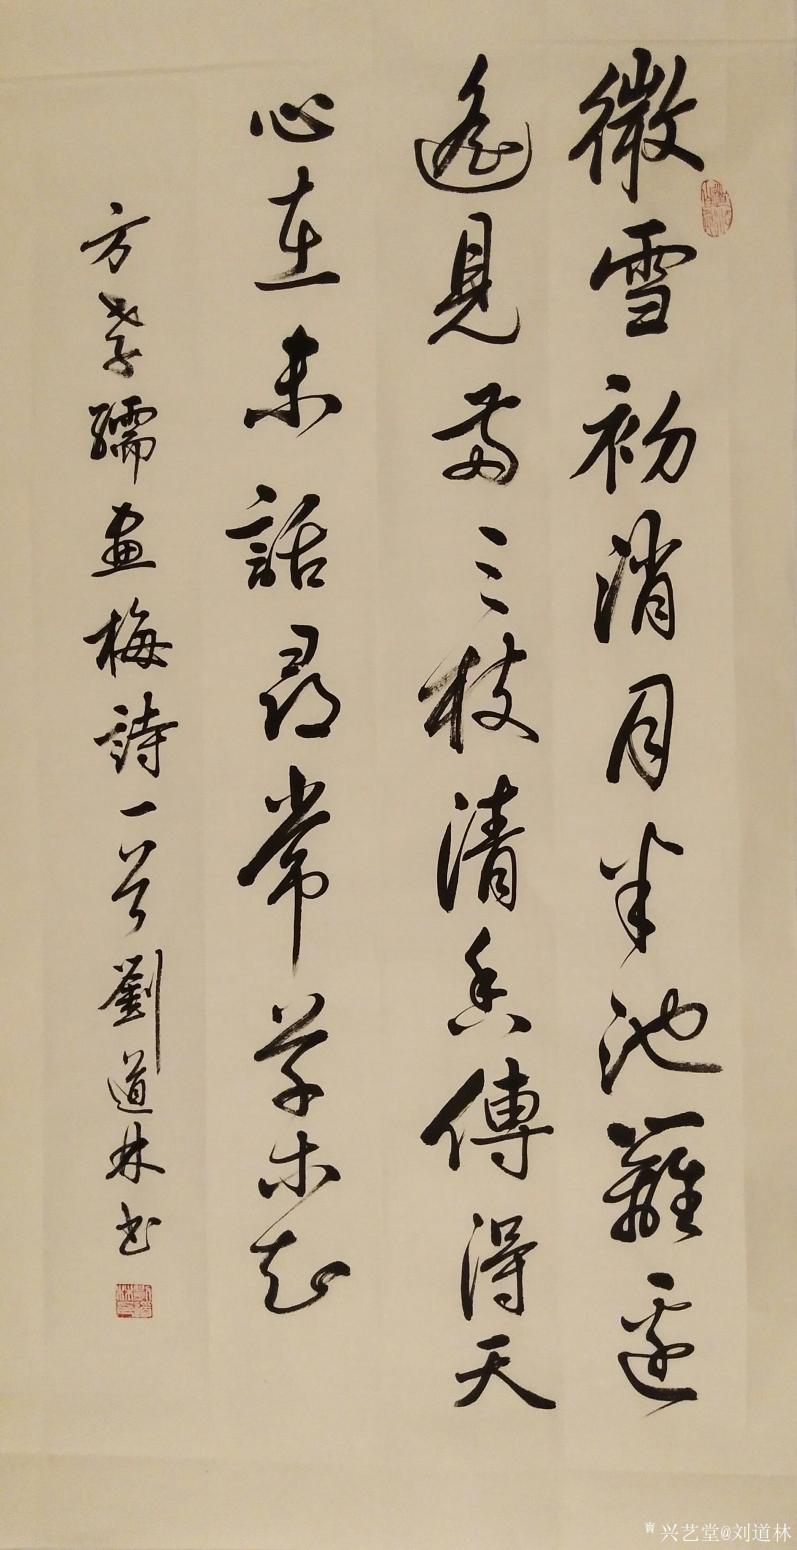 微雪初消月半池籬邊
遙見兩三枝清香傳得天
心在未話尋常草木知
方孝孺畫梅詩一首劉道林書
兴艺堂@刘道林